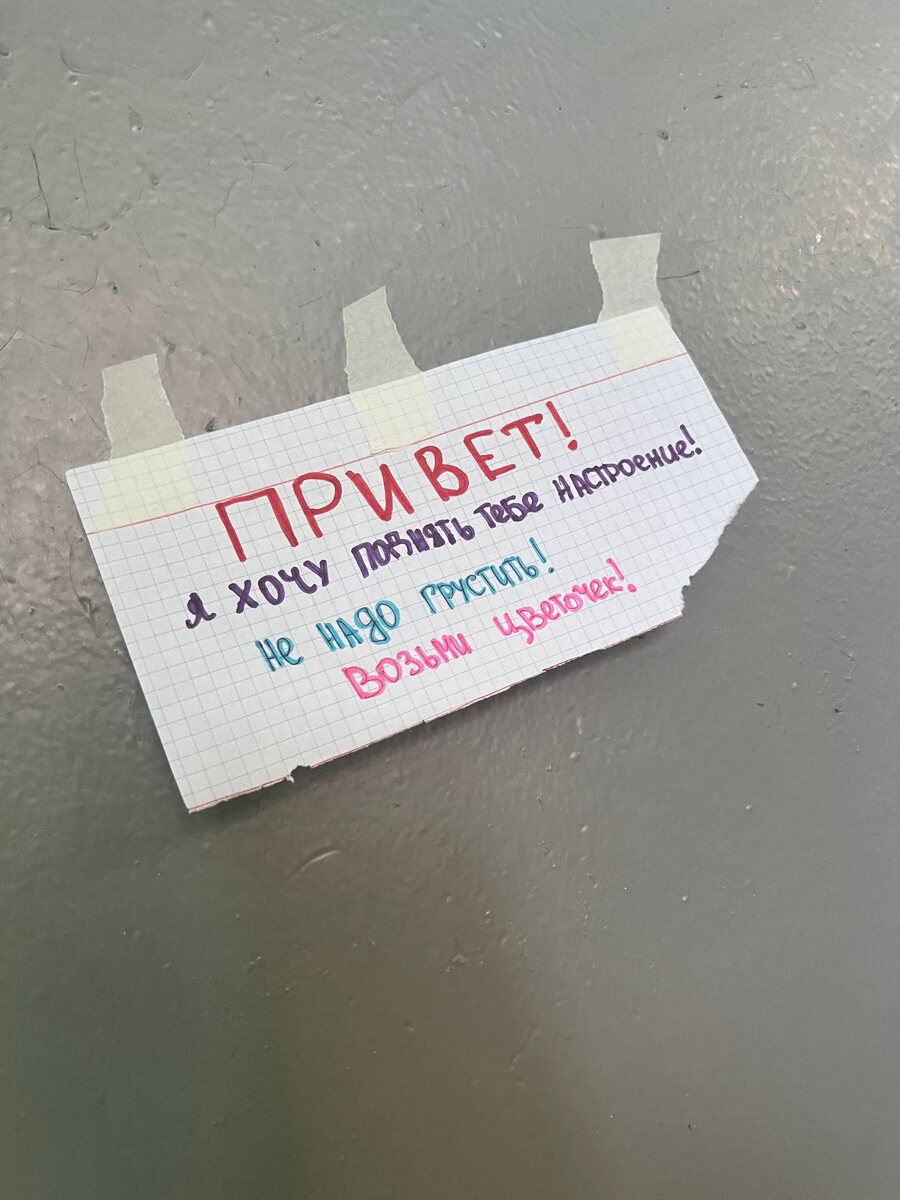 ПРИВЕТ!
Я ХОЧУ ПОДНЯТЬ ТЕБЕ НАСТРОЕНИЕ!
НЕ НАДО ГРУСТИТЬ!
ВОЗЬМИ ЦВЕТОЧЕК!